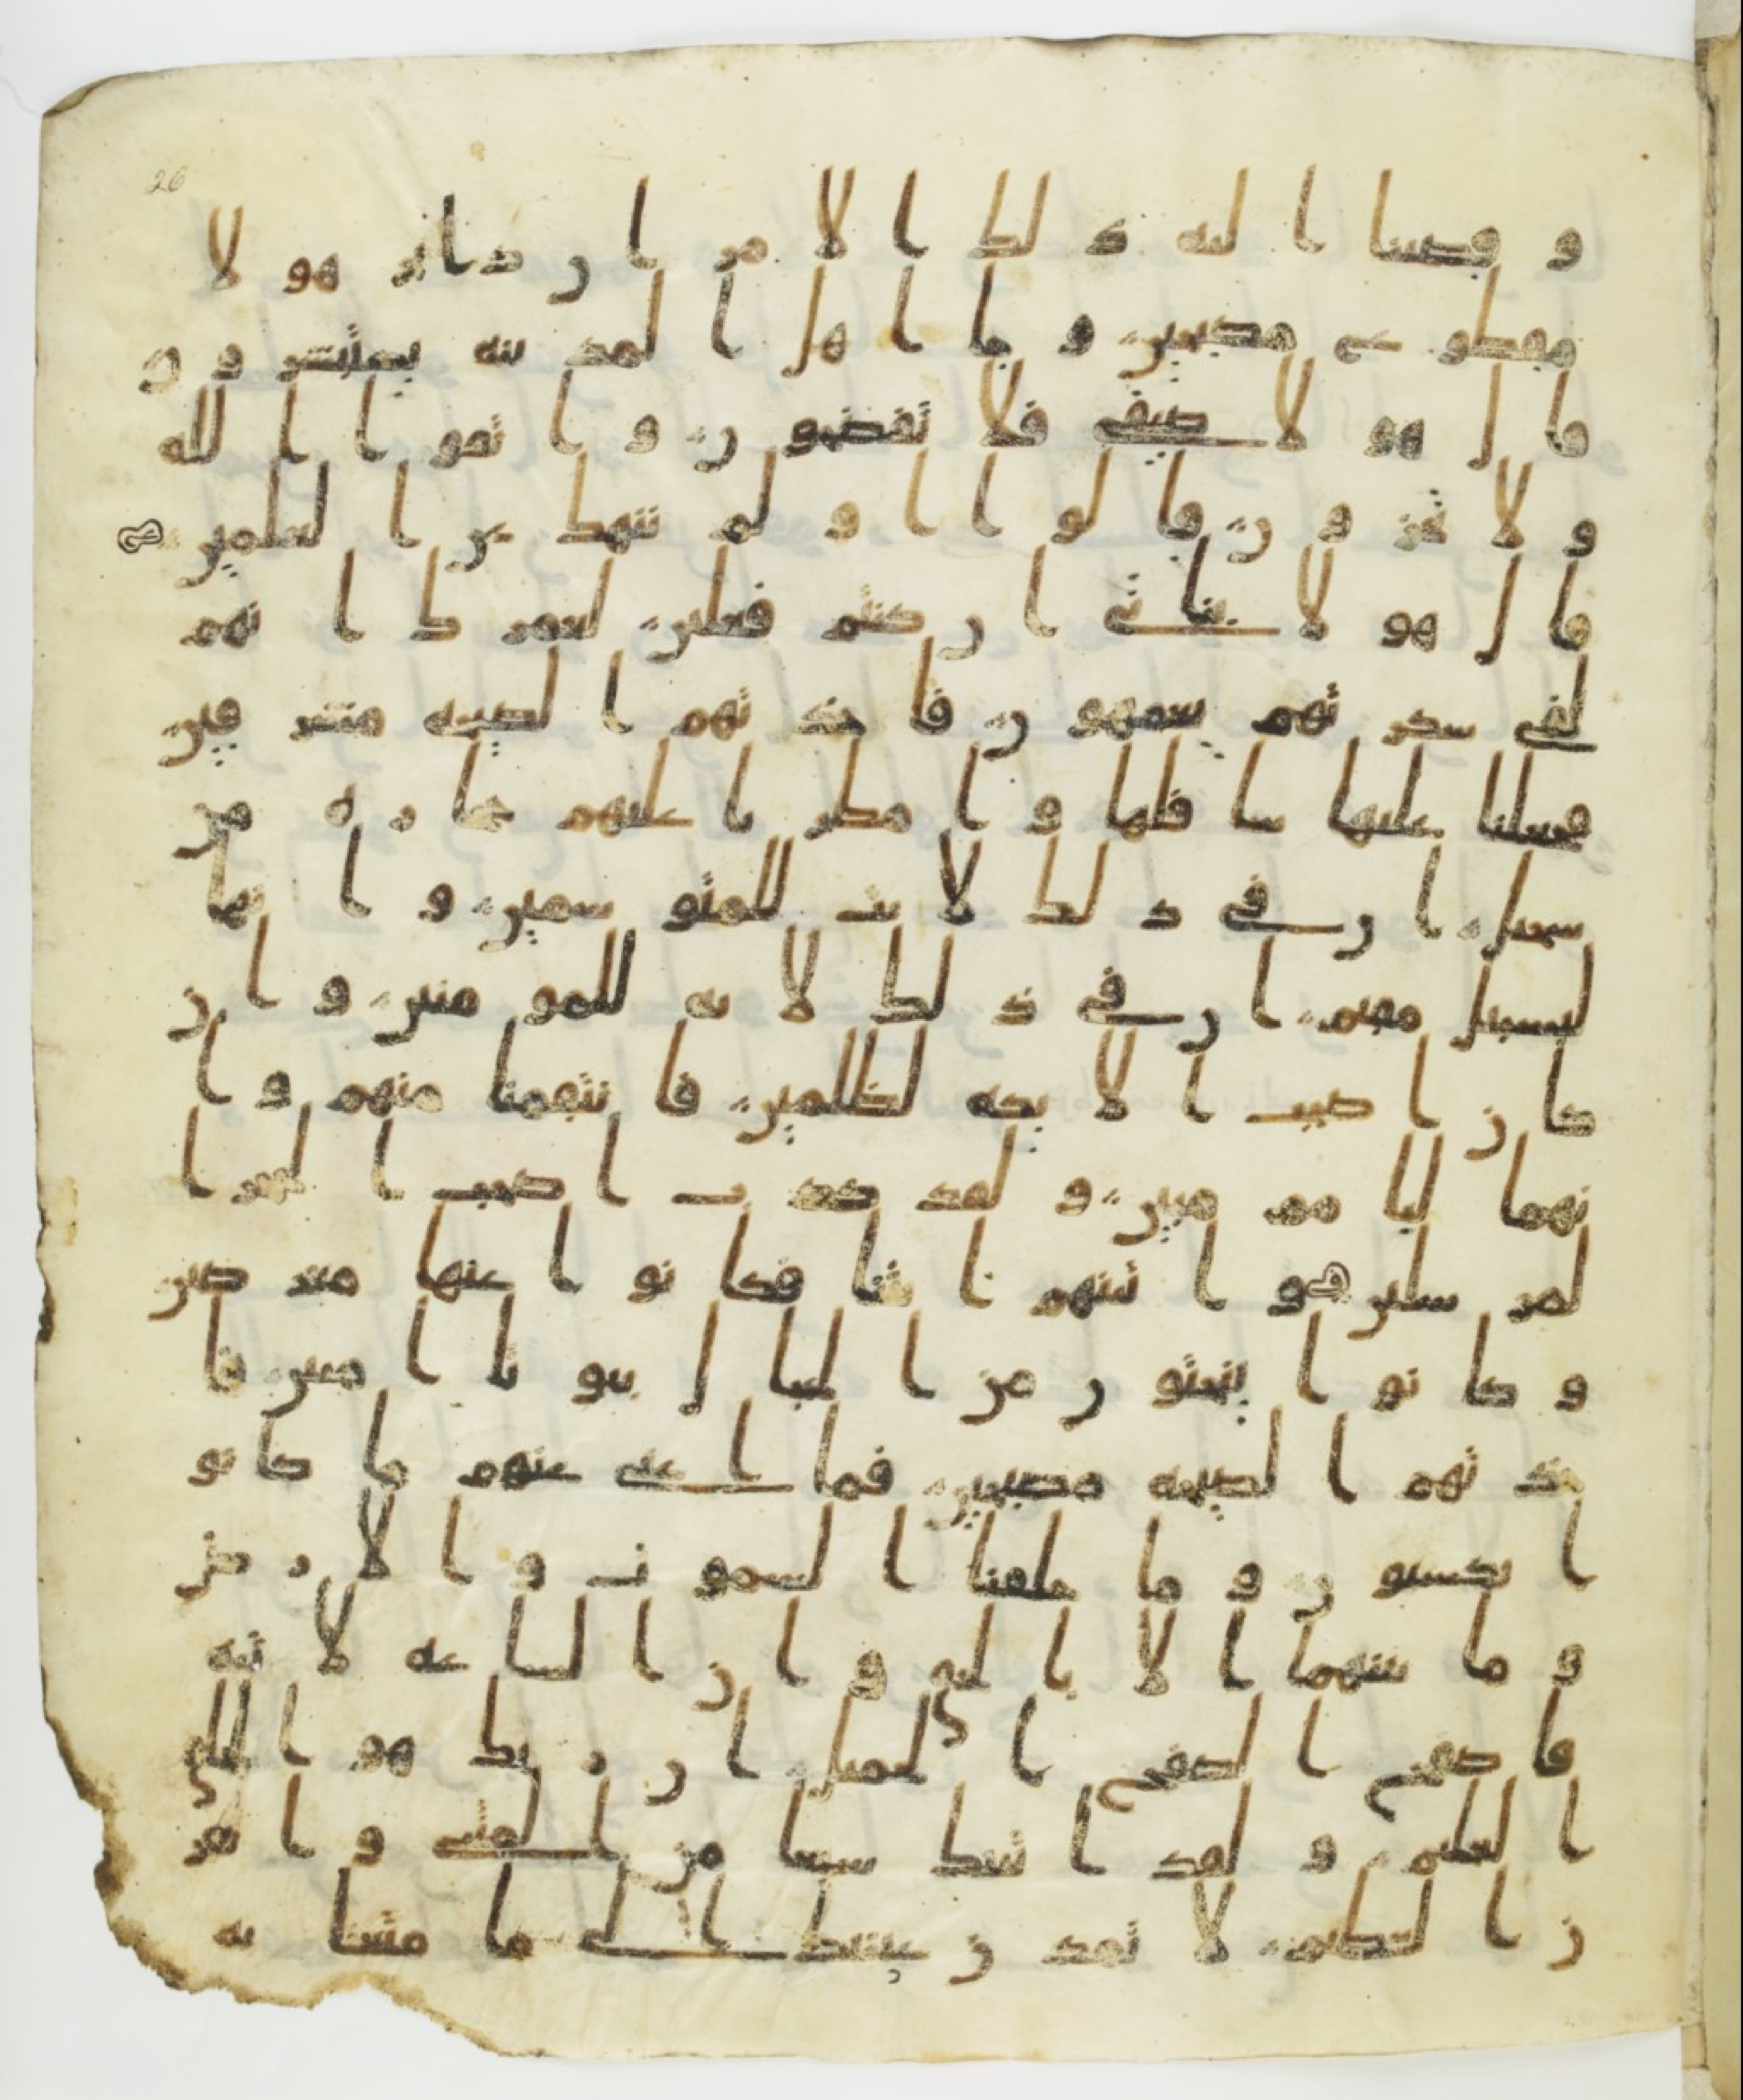 26
وقضينا اليه ذلك الامر ان دابر هولا
مقطوع مصبحين وجا اهل المدينه يستبشرون
قال هولا ضيفي فلا تفضحون واتقوا الله
ولا تخزون قالوا اولم ننهك عن العلمين
قال هولا بناتي ان كنتم فعلين لعمرك انهم
لفي سكرتهم يعمهون فاخذتهم الصيحه مشرقين
فجعلنا عليها سافلها وامطرنا عليهم حجاره من
سجيل ان في ذلك لايت للمتوسمين وانها
لبسبيل مقيم ان في ذلك لايه للمومنين وان
كان اصحب الايكه لظلمين فانتقمنا منهم وا
نهما لبامم مبين ولقد كذب اصحب الحجر ا
لمرسلين و اتينهم ايتنا فكانوا عنها معرضين
وكانوا ينحتون من الجبال بيوتا امنين فا
خذتهم الصيحه مصبحين فما اغنى عنهم ما كانو
ا يكسبون وما خلقنا السموت والارض
وما بينهما الا بالحق وان الساعه لاتيه
فاصفح الصفح الجميل ان ربك هو الخلق
العليم ولقد اتينك سبعا من المثني والقر
ن العظيم لا تمدن عينيك الى ما متعنا به